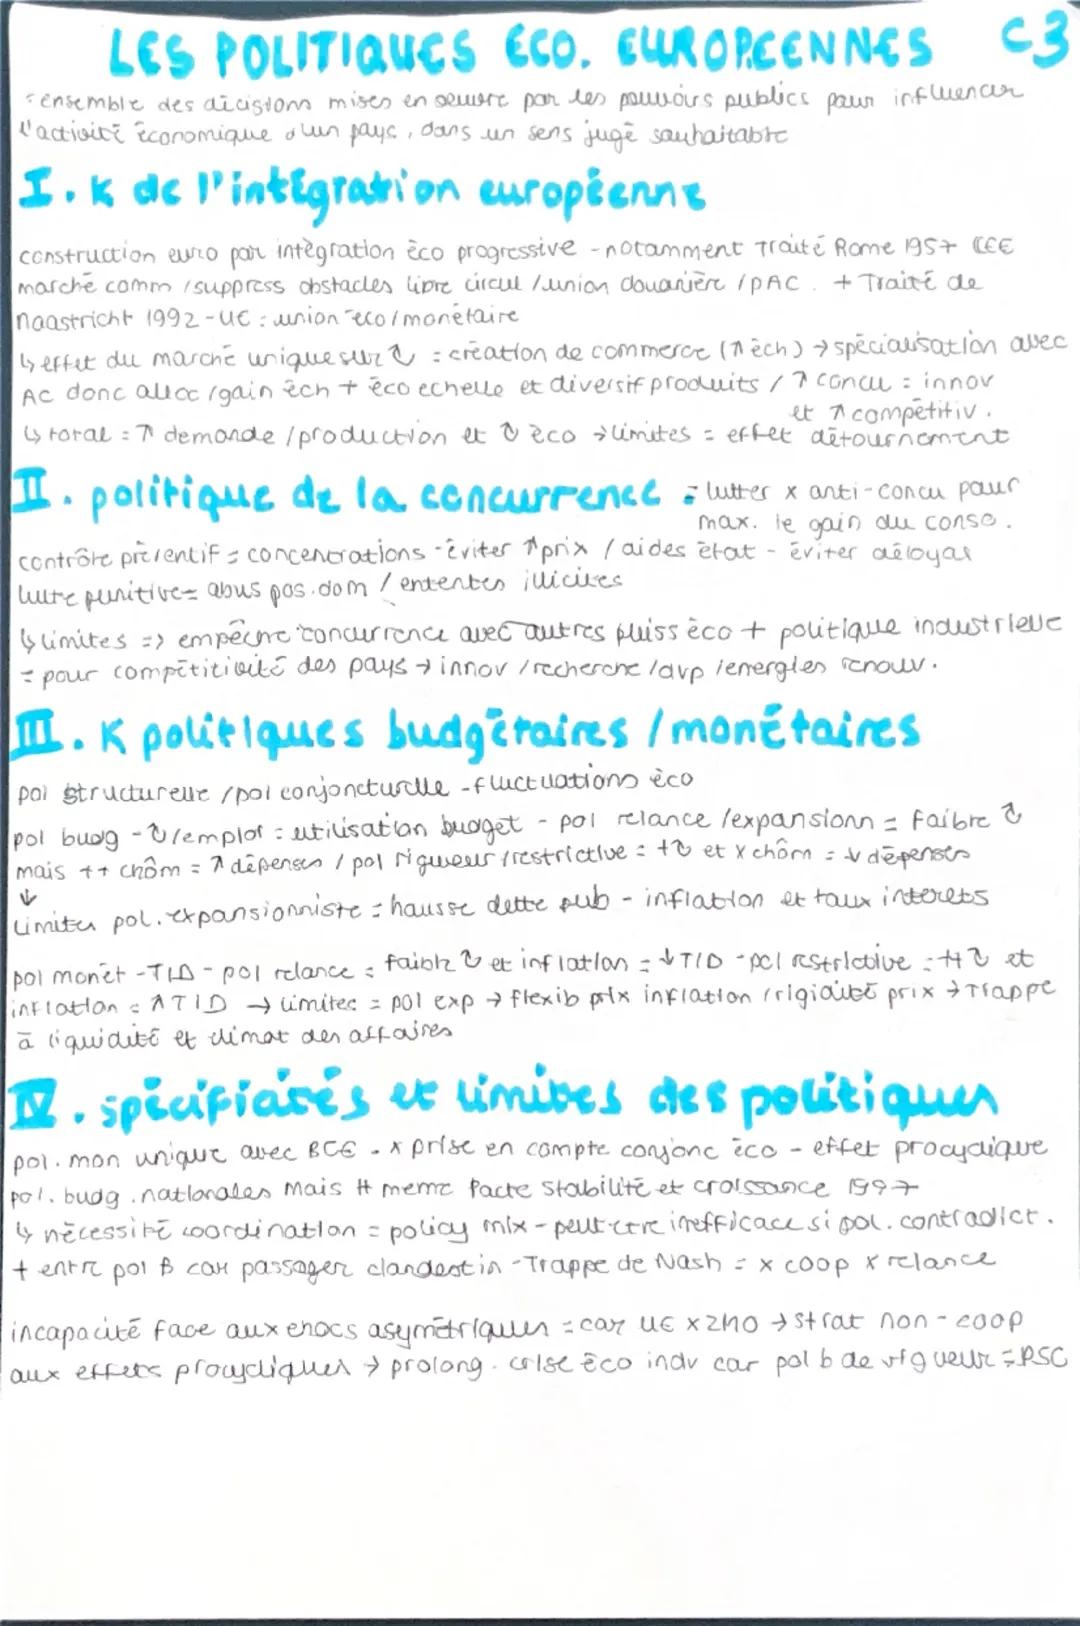 LES POLITIQUES ECO. EUROPEENNES C3
= ensemble des décisions mises en oeuvre par les pouvoirs publics pour influencer
l'activité économique d'un pays, dans un sens jugé souhaitable
I. K de l'intégration européenne
construction euro par intégration éco progressive - notamment Traité Rome 1957 CEE
marché comm / suppress obstacles libre circul / union douanière / PAC. + Traité de
Maastricht 1992 - UE : union éco / monétaire
↳ effet du marché unique sur ↻ = création de commerce (↑ éch) → spécialisation avec
AC donc alloc / gain éch + éco echelle et diversif produits / ↗ concu = innov
et ↗ compétitiv.
↳ total = ↗ demande / production et ↻ éco → limites = effet détournement
II. politique de la concurrence = lutter x anti-concu pour
max. le gain du conso.
contrôle préventif = concentrations - éviter ↑ prix / aides état - éviter déloyas
lutte punitive = abus pos. dom / ententes illicites
↳ limites => empêche concurrence avec autres puiss éco + politique industrielle
= pour compétitivité des pays → innov / recherche / dvp / energies renouv.
III. K politiques budgétaires / monétaires
pol structurelle / pol conjoncturelle - fluctuations éco
pol budg - ↻ / emploi = utilisation budget - pol relance / expansionn = faible ↻
mais ++ chôm = ↗ dépenses / pol rigueur / restrictive = + ↻ et x chôm = ↓ dépenses
↓
Limites pol. expansionniste = hausse dette pub - inflation et taux interets
pol monét - TID - pol relance = faible ↻ et inflation = ↓ TID - pol restrictive = ++ ↻ et
inflation = ↑ TID → limites = pol exp → flexib prix inflation / rigidité prix → Trappe
à liquidité et climat des affaires
IV. spécifiatés et limites des politiques
pol. mon unique avec BCE - x prise en compte conjonc éco - effet procyclique
pol. budg. nationales mais # meme Pacte Stabilité et croissance 1997
↳ nécessité coordination = policy mix - peut être inefficace si pol. contradict.
+ entre pol B car passager clandestin - Trappe de Nash = x coop x relance
incapacité face aux chocs asymétriques = car UE x ZMO → strat non-coop
aux effets procycliques → prolong. crise éco indv car pol b de vigueur = PSC